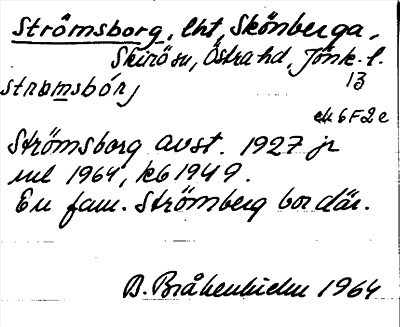 Strömsborg, lht, Skönberga,
Skirö sn, Östra hd, Jönk. l.
13
strömsbórj
ek 6F2e
Strömsborg avst. 1927 jr
uul 1964, kb 1949.
En fam. Strömberg bor där.
B. Bråkenhielm 1964